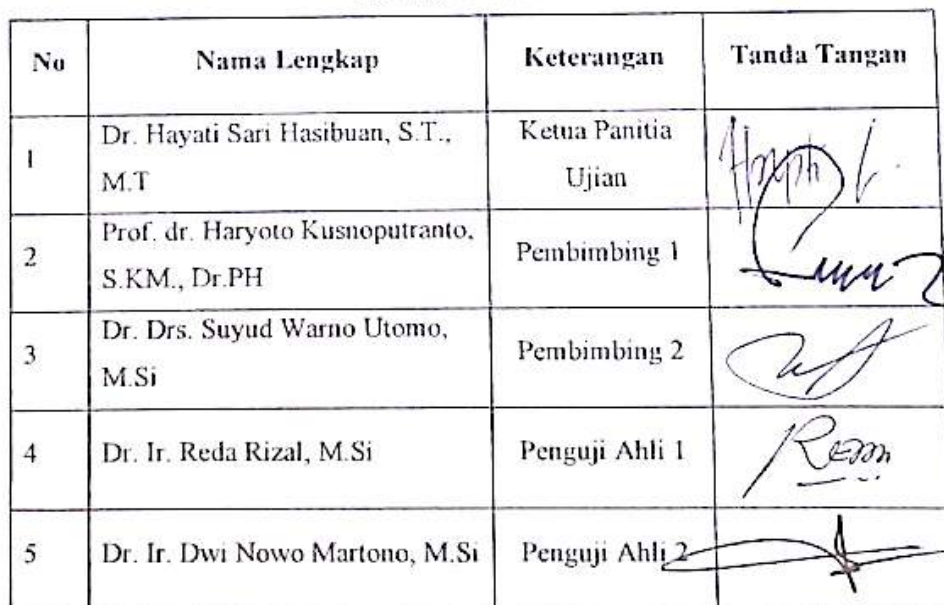 No Nama Lengkap Keterangan Tanda Tangan
1 Dr. Hayati Sari Hasibuan, S.T., M.T Ketua Panitia Ujian
2 Prof. dr. Haryoto Kusnoputranto, S.KM., Dr.PH Pembimbing 1
3 Dr. Drs. Suyud Warno Utomo, M.Si Pembimbing 2
4 Dr. Ir. Reda Rizal, M.Si Penguji Ahli 1
5 Dr. Ir. Dwi Nowo Martono, M.Si Penguji Ahli 2